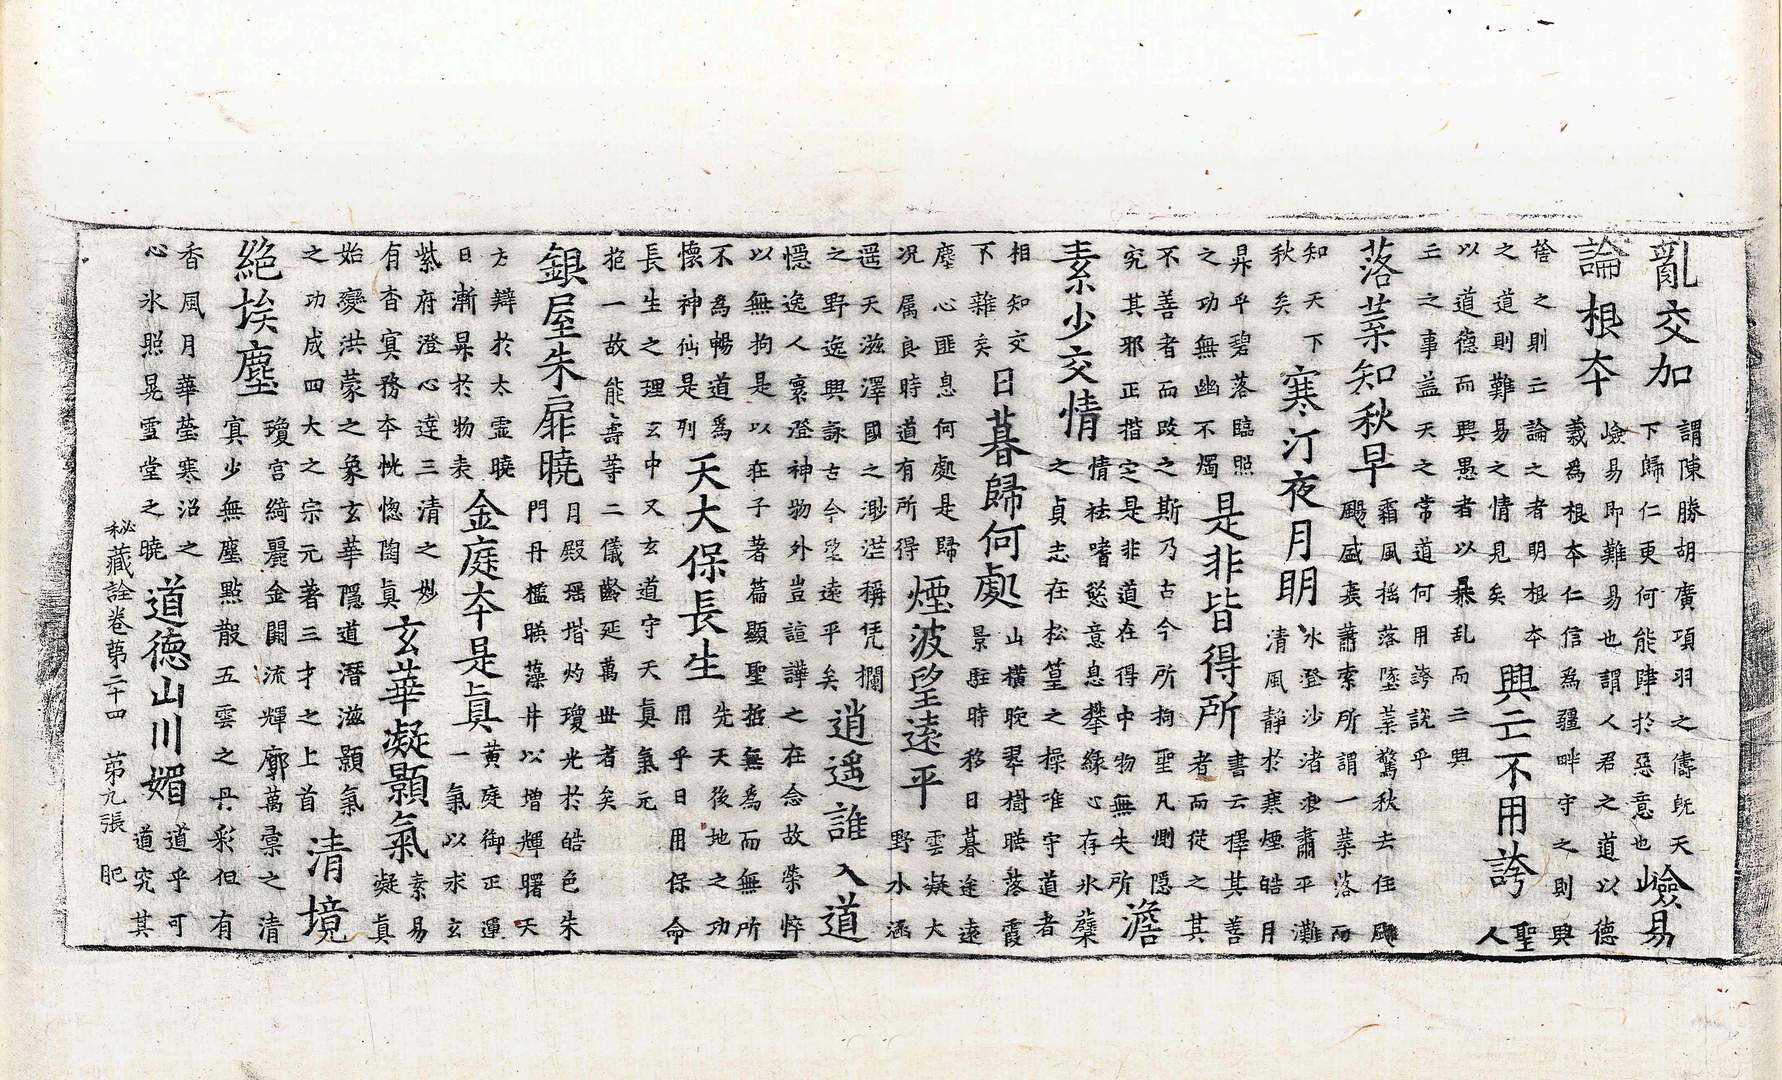 亂交加謂陳勝胡廣項羽之儔旣天下歸仁更何能肆於惡意也嶮易
論根本嶮易即難易也謂人君之道以德義為根本仁信為疆畔守之則興
捨之則亡論之者明根本之道則難易之情見矣興亡不用誇聖人
以道德而興愚者以暴乱而亡興亡之事盖天之常道何用誇說乎
落葉知秋早霜風揺落墜葉驚秋去住飈颺盛衰蕭索所謂一葉落而
知天下秋矣寒汀夜月明氷澄沙渚寂肅平灘清風靜於寒煙皓月
昇乎碧落臨照之功無幽不燭是非皆得所書云擇其善者而從之其
不善者而改之斯乃古今所拘聖凡惻隱究其邪正揩定是非道在得中物無失所澹
素少交情情祛嗜慾意息攀緣心存氷蘖之貞志在松篁之操唯守道者
相知交下雜矣日暮歸何處山橫晚翠樹暎落霞景駐時移日暮途遠
塵心匪息何處是歸况属良時道有所得煙波望遠平雲凝大野水涵
遥天滋澤國之渺茫稱凭欄之野逸興詠古今望遠平矣逍遥誰入道
隱逸人寰澄神物外豈諠譁之在念故榮悴以無拘是以在子著篇顯聖哲無為而無所
不為暢道為懷神仙是列天大保長生先天後地之功用乎日用保命
長生之理玄中又玄道守天真氣元抱一故能壽等二儀齡延萬世者矣
銀屋朱扉曉月殿瑶堦灼瓊光於皓色朱門丹檻暎藻井以增輝曙天
方辯於太霊曉日漸昇於物表金庭本是真黄庭御正運一氣以求玄
紫府澄心達三清之妙有杳寞務本恍惚陶真玄華凝顥氣素易凝真
始變洪蒙之象玄華隱道潛滋顥氣之功成四大之宗元著三才之上首清境
絶埃塵瓊宮綺麗金闕流輝廓萬彙之清寞少無塵點散五雲之丹彩但有
香風月華瑩寒沼之心氷照晃雪堂之曉道德山川媚道乎可道究其
秘藏詮卷第二十四　第九張　肥